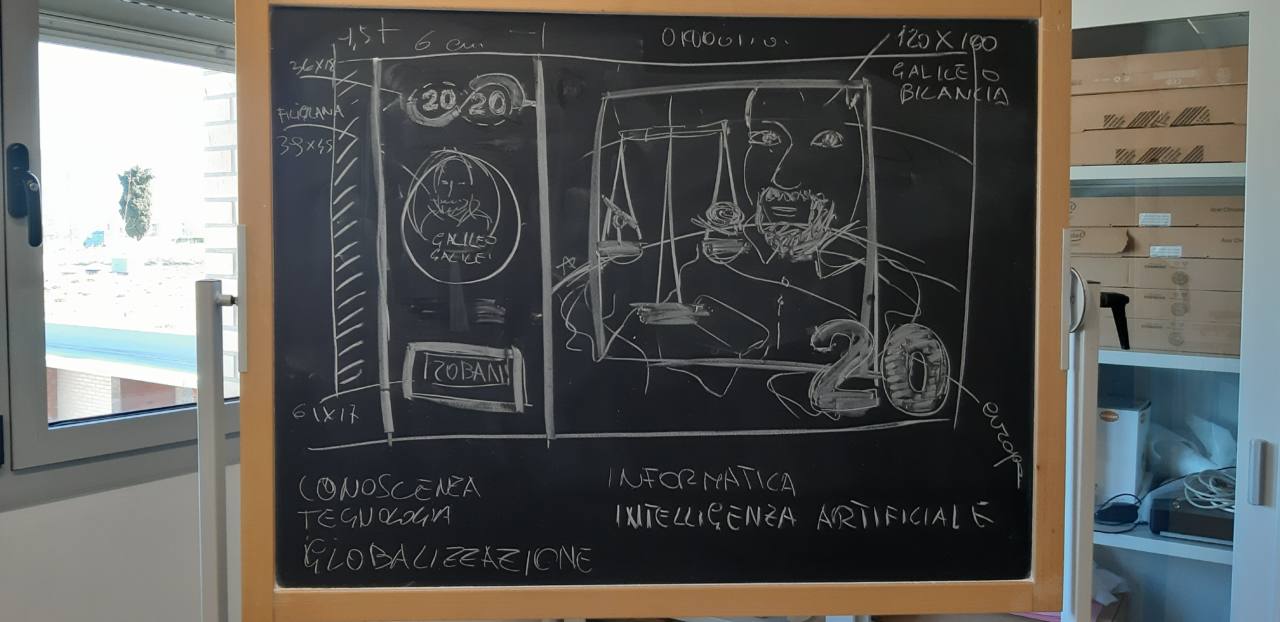 1,5+
6 cm
120 X 180
GALILEO
BILANCIA
FILIGRANA
20 20
GALILEO
GALILEI
20
61X17
europa
CONOSCENZA
TECNOLOGIA
GLOBALIZZAZIONE
INFORMATICA
INTELLIGENZA ARTIFICIALE